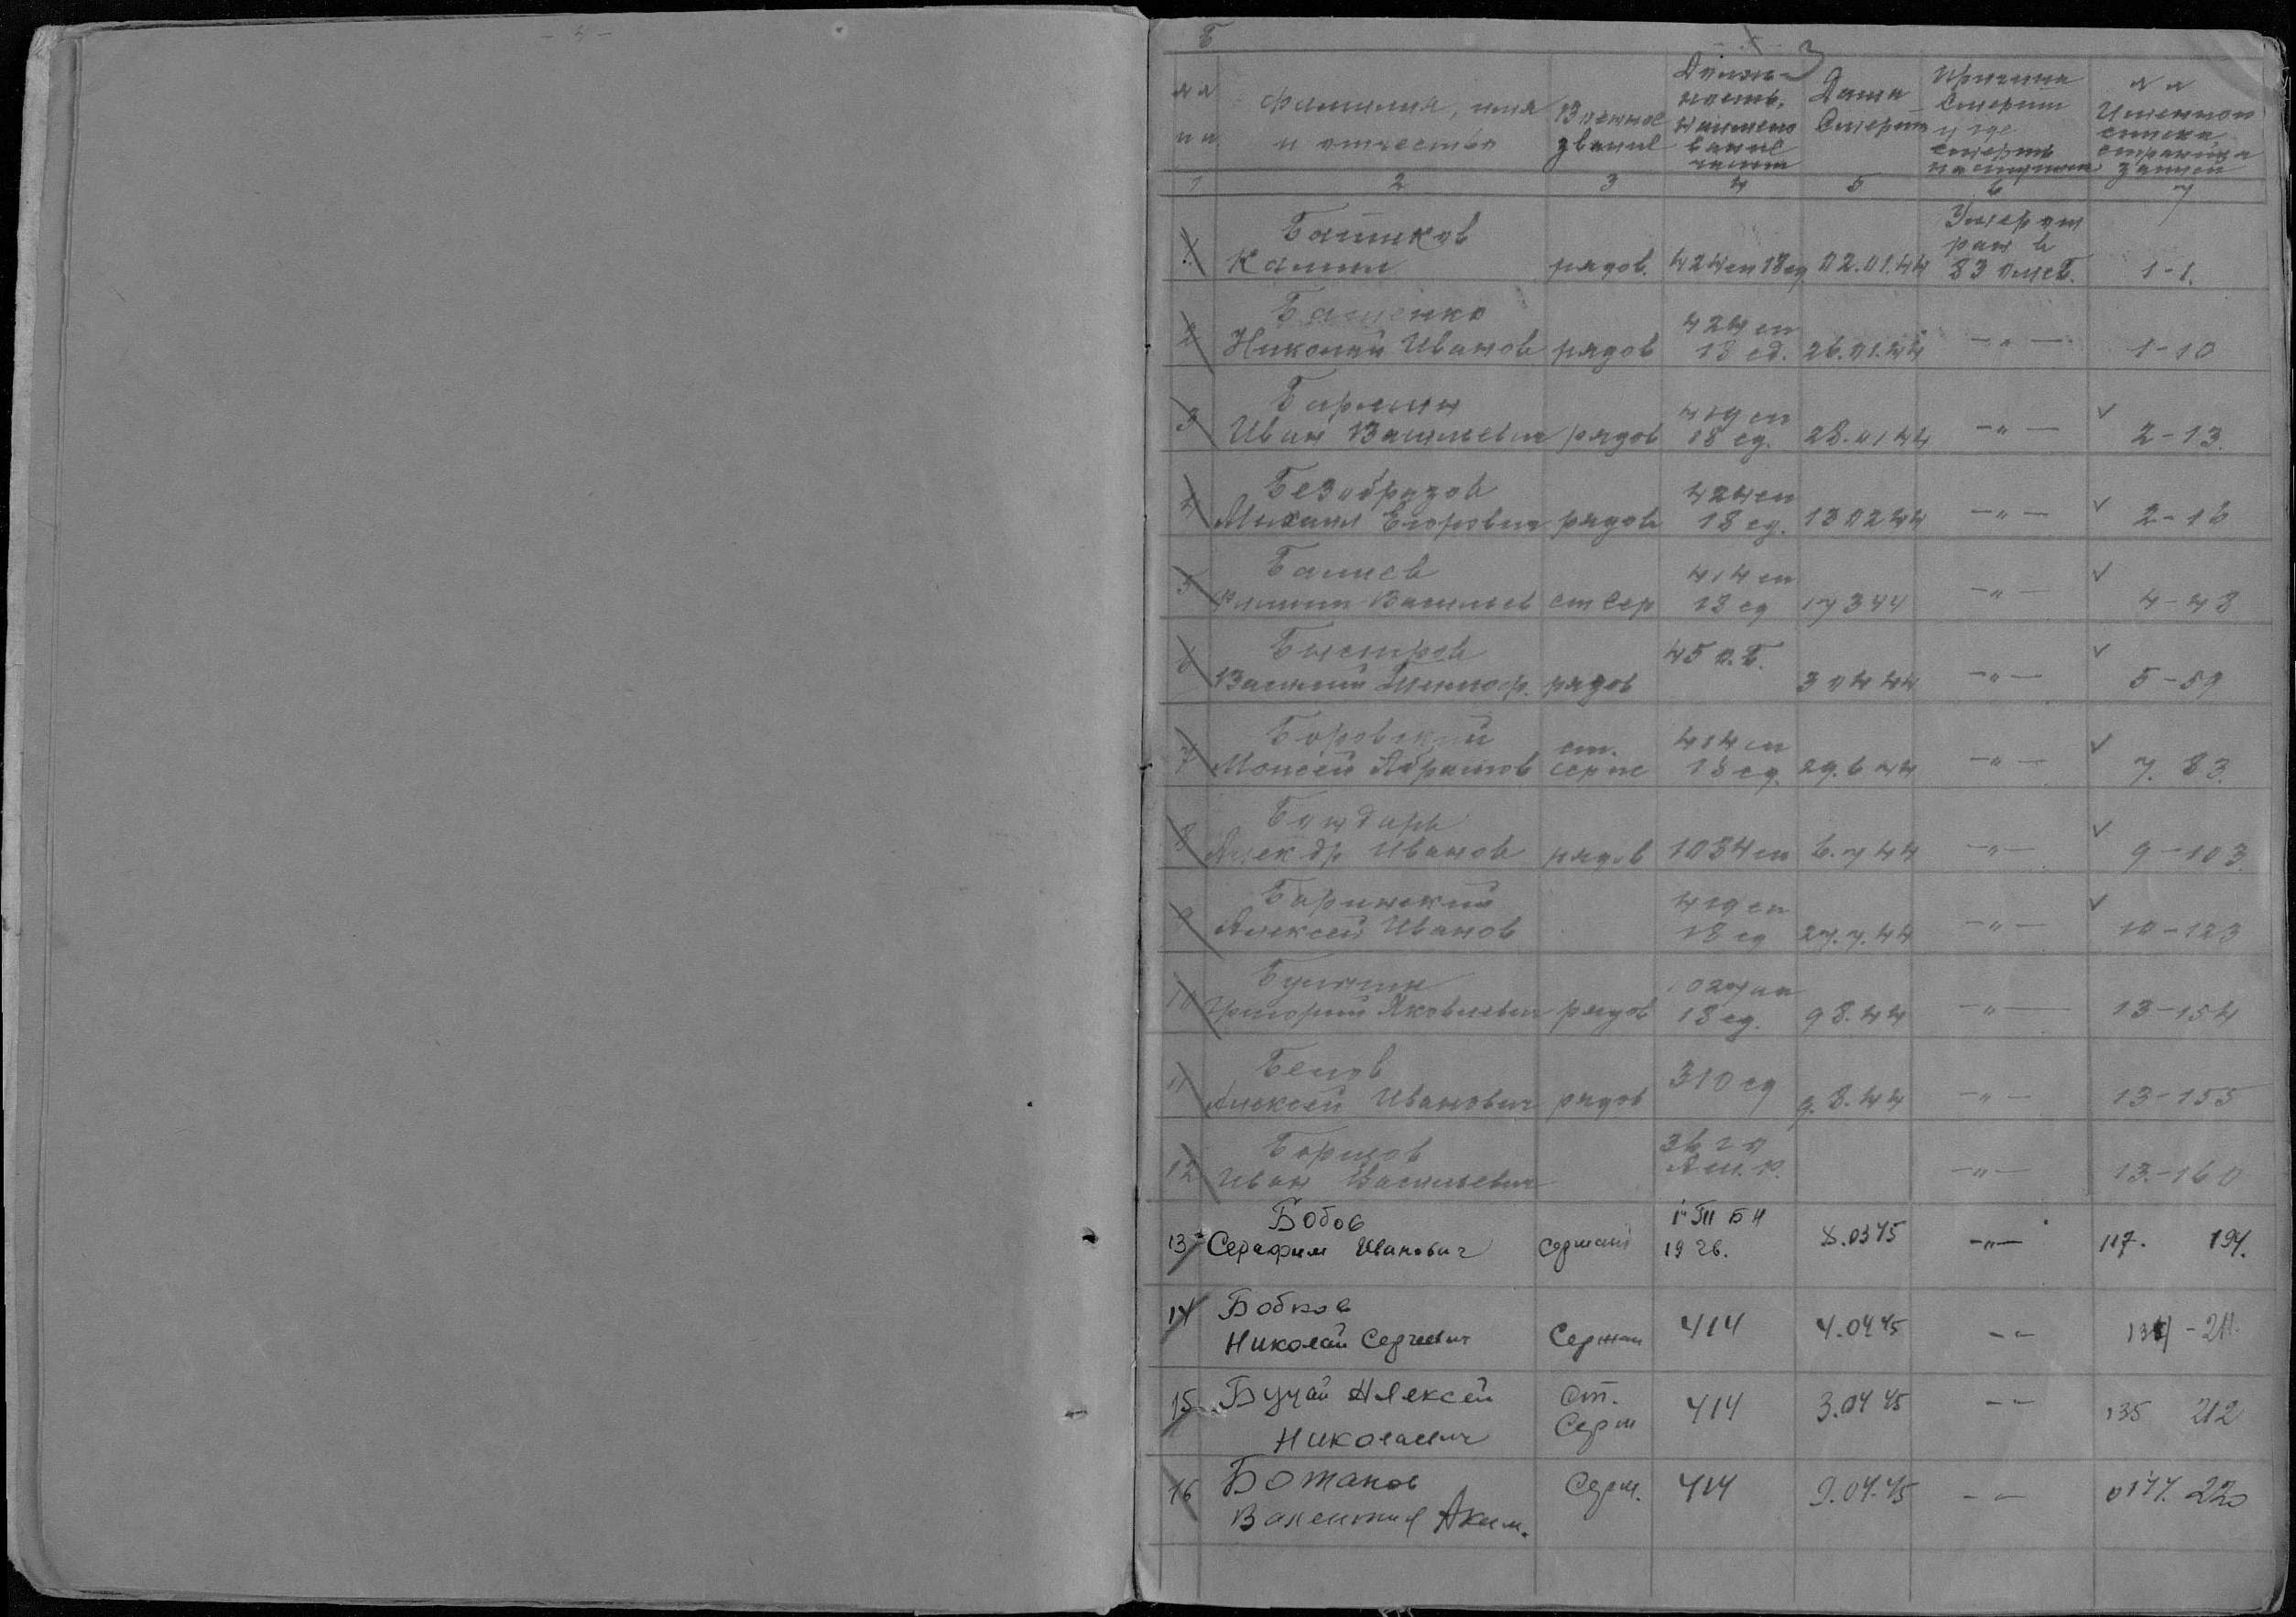 Б
3
№ №
п п
Фамилия, имя
и отчество
Военное
звание
Долж-
ность,
наимено
вание
части
Дата
Смерти
Причина
Смерти
и где
смерть
№ №
Именного
списка
страница
записи
1 2 3 4 5 6 7
1 Батиков
Камил рядов. 424 сп 18 сд 02.01.44 Умер от
ран в
83 ОМСБ. 1-1.
2 Бащенко
Николай Иванов рядов 424 сп
18 сд. 26.01.44 -"- 1-10
3
Иван Васильевич рядов 419 сп
18 сд. 28.01.44 -"- 2-13.
4 Безобразов
Михаил Егорович рядов 424 сп
18 сд. 130244 -"- 2-16
5
Филипп Васильев ст Сер 414 сп
18 сд 17344 -"- 4-48
6 Быстров
Василий рядов 45 О.Б. 30444 -"- 5-59
7 Боровский
Моисей Абрамов ст.
серж 414 сп
18 сд. 29.6 44 -"- 7. 83.
8 Бондарь
Алек др Иванов рядов 1034 сп 6.7 44 -"- 9-103.
9 Баринский
Алексей Иванов 419 сп
18 сд 27.7.44 -"- 10-123
10
Григорий Яковлевич рядов 1024 сп
18 сд. 9 8.44 -"- 13-154
11 Белов
Алексей Иванович рядов 310 сд 9.8.44 -"- 13-155
12
Иван Васильевич -"- 13.-160
13 Бобов
Серафим Иванович сержант 8.0345 -"- 117. 194.
14 Бобков
Николай Сергеевич Сержан 414 4.0445 -"- 134 - 211.
15 Бучай Алексей
Николаевич Ст.
Серж 414 3.04 45 -- 135 212
16 Божанов
Валентин Аким. Серж. 414 9.04.45 -- 220